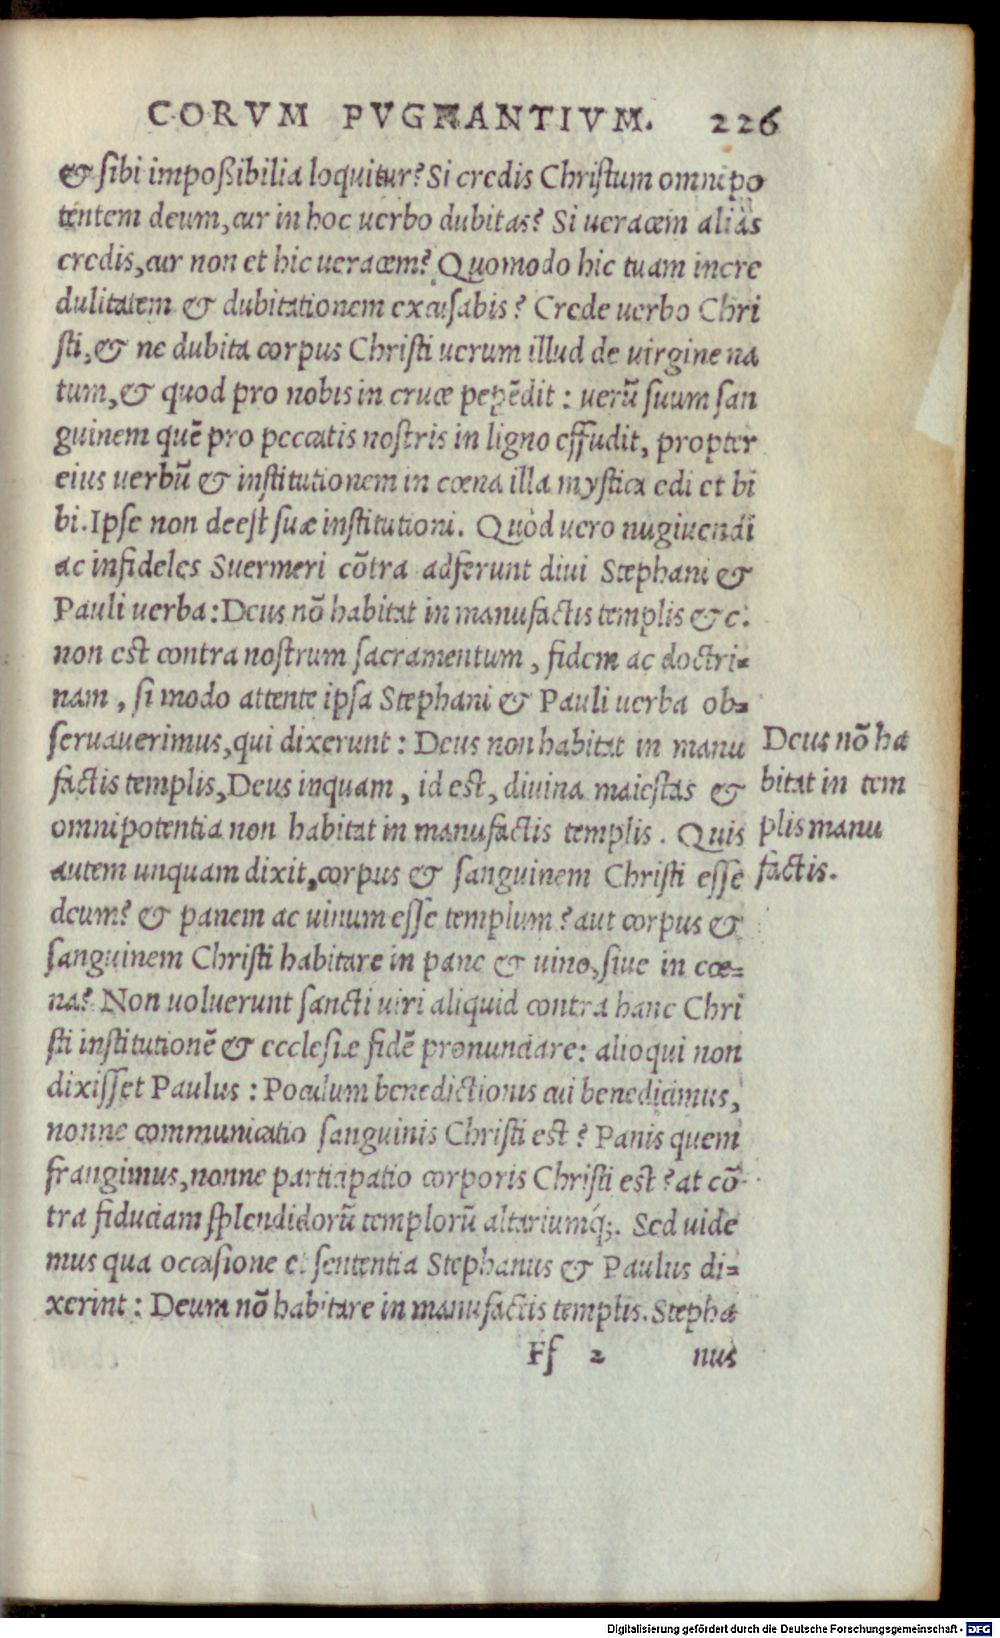 CORVM PVGNANTIVM. 226
& ſibi impoßibilia loquitur? Si credis Chriſtum omnipo
tentem deum, cur in hoc uerbo dubitas? Si ueracem aliâs
credis, cur non et hic ueracem? Quomodo hic tuam incre
dulitatem & dubitationem excuſabis? Crede uerbo Chri
ſti, & ne dubita corpus Chriſti uerum illud de uirgine na
tum, & quod pro nobis in cruce pepēdit: uerū ſuum ſan
guinem quē pro peccatis noſtris in ligno effudit, propter
eius uerbū & inſtitutionem in cœna illa myſtica edi et bi
bi. Ipſe non deeſt ſuæ inſtitutioni. Quòd uero nugiuendi
ac infideles Suermeri cōtra adferunt diui Stephani &
Pauli uerba: Deus nō habitat in manufactis templis & c.
non eſt contra noſtrum ſacramentum, fidem ac doctri=
nam, ſi modo attente ipſa Stephani & Pauli uerba ob=
ſeruauerimus, qui dixerunt: Deus non habitat in manu
factis templis, Deus inquam, id eſt, diuina maieſtas &
omnipotentia non habitat in manufactis templis. Quis
autem unquam dixit, corpus & ſanguinem Chriſti eſſe
deum? & panem ac uinum eſſe templum? aut corpus &
ſanguinem Chriſti habitare in pane & uino, ſiue in cœ=
na? Non uoluerunt ſancti uiri aliquid contra hanc Chri
ſti inſtitutionē & eccleſiæ fidē pronunciare: alioqui non
dixiſſet Paulus: Poculum benedictionis cui benedicimus,
nonne communicatio ſanguinis Chriſti eſt? Panis quem
frangimus, nonne participatio corporis Chriſti eſt? at cō
tra fiduciam ſplendidorū templorū altariumq́;. Sed uide
mus qua occaſione et ſententia Stephanus & Paulus di=
xerint: Deum nō habitare in manufactis templis. Stepha
Ff 2 nus
Deus nō ha
bitat in tem
plis manu
factis.
Digitalisierung gefördert durch die Deutsche Forschungsgemeinschaft - DFG